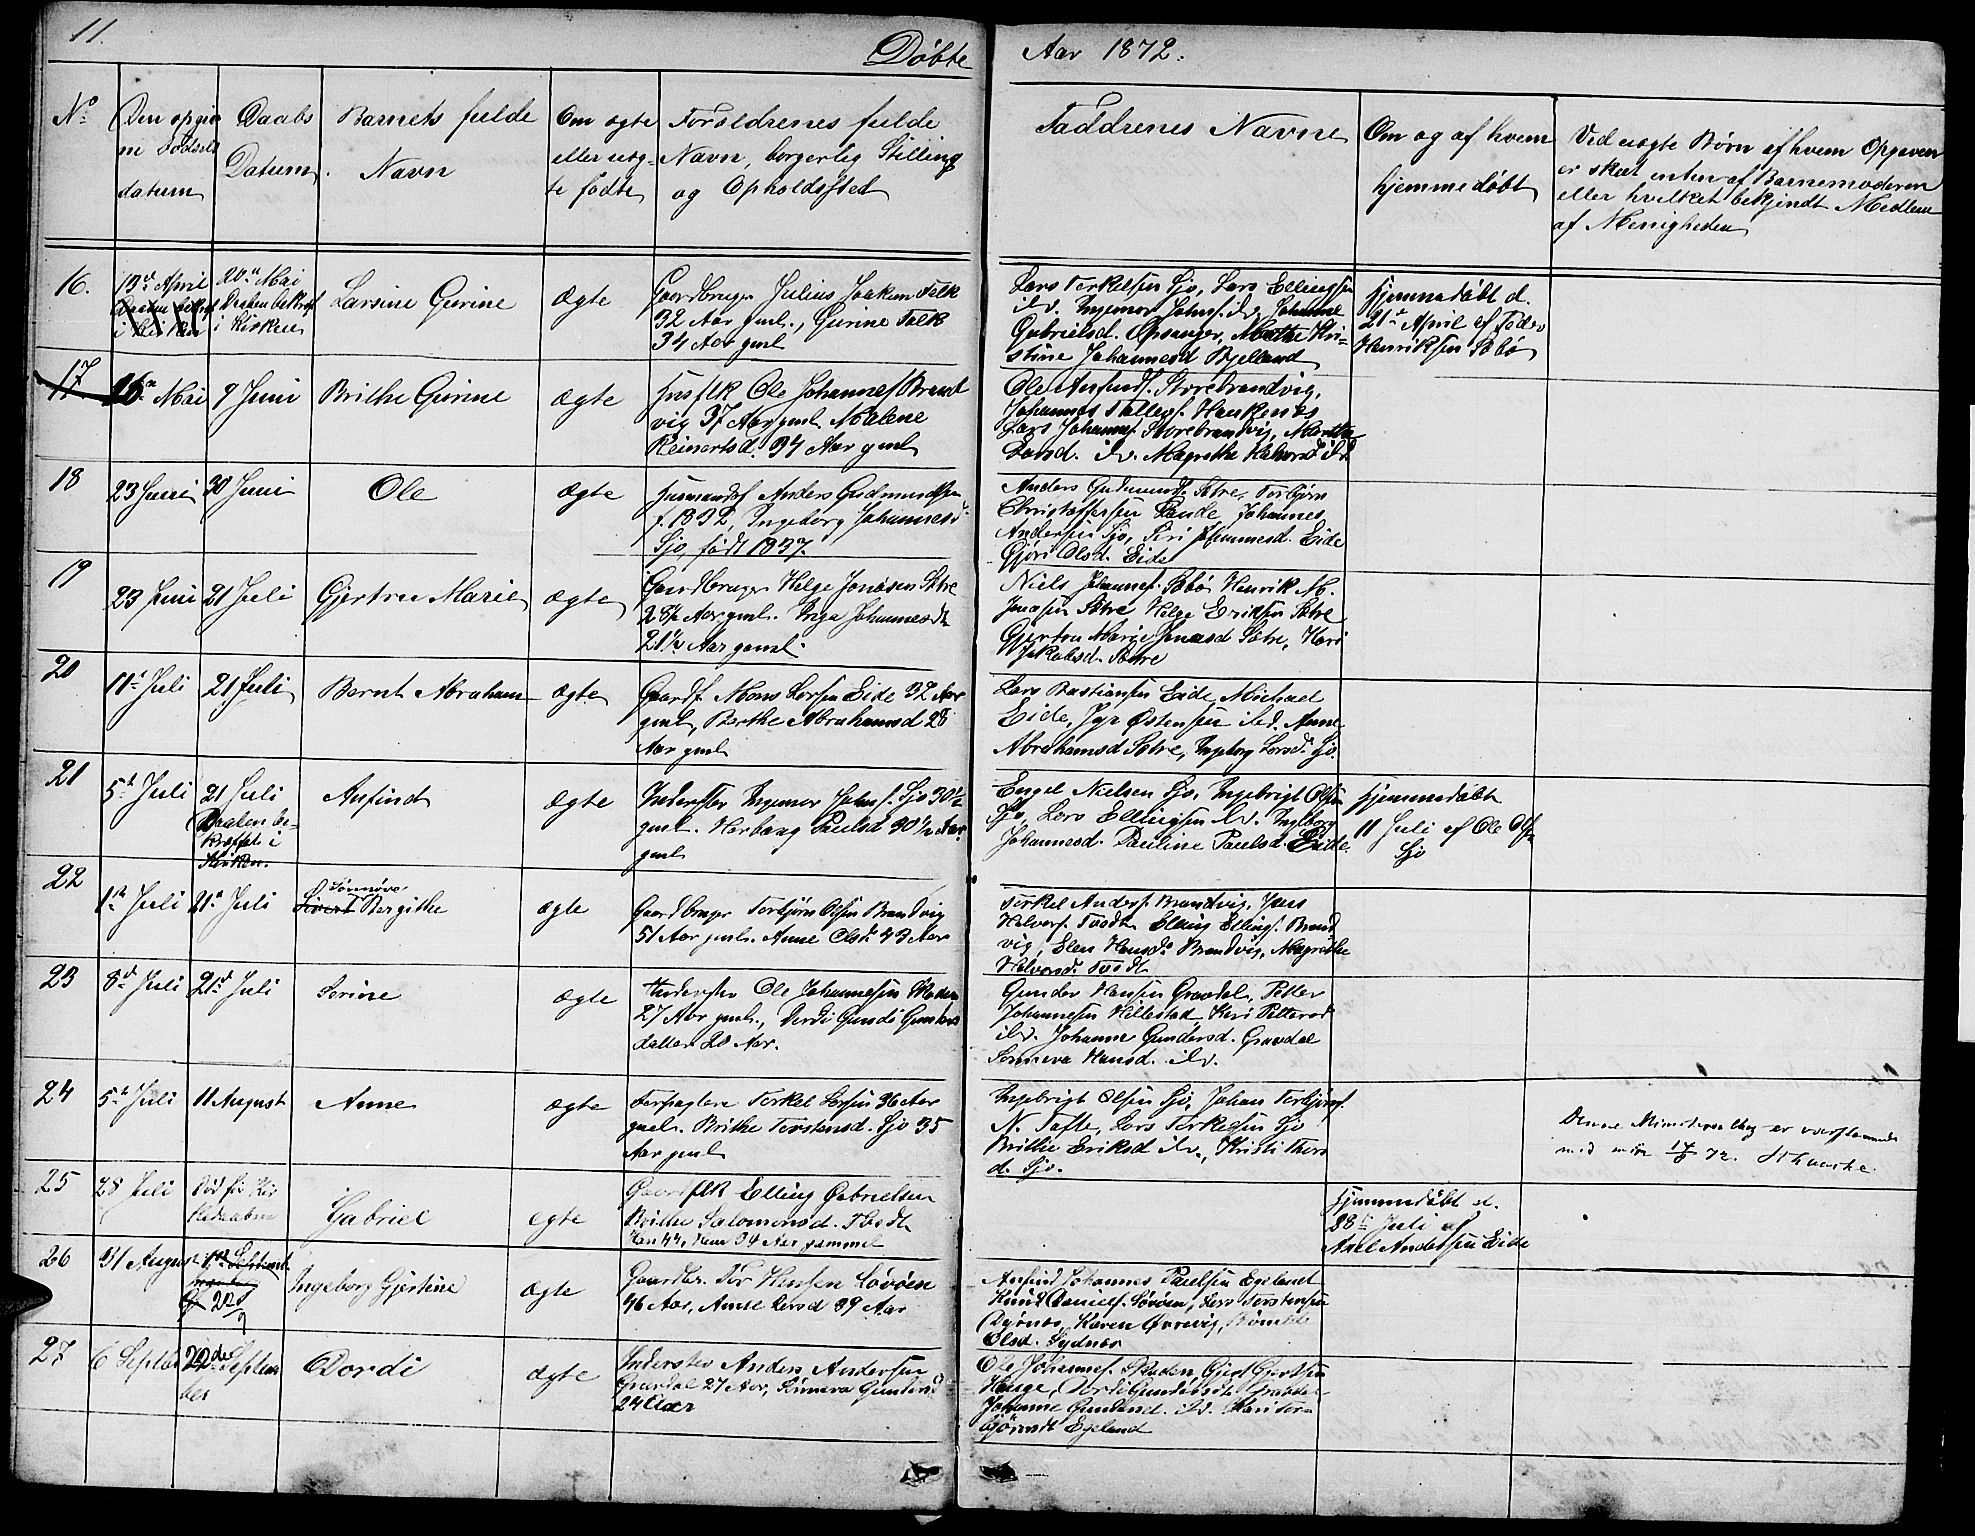 11.
Døbte
Aar 1872.
No
Den opgiv
ne Fødsels
datum
Daabs
Datum.
Barnets fulde
Navn
Om ægte
eller uæg-
te fødte
Forældrenes fulde
Navn, borgerlig Stilling
og Opholdssted
Faddrenes Navne
Om og af hvem
hjemmedøbt
Ved uægte Børn af hvem Opgaven
er skeet enten af Barnemoderen
eller hvilket bekjendt Medlem
af Menigheden
16.
19de April
i Kirken
20de Mai
Daaben bekræf
i Kirken
Larsine Gurine
Ægte
Gaardbruger Julius Joakim Falk
32 Aar gml., Gurine Falk
34 Aar gml
Lars Terkelsen Sjo, Lars Ellingsen
ibd. Ingemor Johnsd. ibd. Johanne
Gabrielsd. Opsanger, Marthe Kri-
stine Johannesd Bjelland
Hjemmedøbt d.
21de April af Peder
Henriksen Sæbø
17
16de Mai
9 Juni
Brithe Gurine
Ægte
Husflk Ole Johannes Brand
vig 37 Aar gml. Malene
Reinertsd. 34 Aar gml
Ole Anfinds. Storebrandvig,
Johannes Halles. Haukenæs
Lars Johannes. Storebrandvig, Marthe
Larsd. ibd. Magrethe Halvorsd ibd.
18
23 Juni
30 Juni
Ole
Ægte
Husmandsf Anders Gudmundsen
f. 1832, Ingeborg Johannesd.
Sjo, født 1837.
Anders Gudmunds. Sætre, Torbjørn
Christoffersen Sande, Johannes
Andersen Sjo, Siri Johannesd. Eide
Gjøri Olsd. Eide
19
23 Juni
21 Juli
Gjertru Marie
Ægte
Gaardbruger Helge Jonasen Sætre
28½ Aar gml. Inga Johannesdtr
21½ Aar gaml.
Niels Johannes. Sæbø Henrik M.
Jonasen Sætre Helge Eriksen Sætre
Gjertru Marie Jonasd Sætre, Kari
Jakobsd. Sætre
20
11te Juli
21 Juli
Bernt Abraham
Ægte
Gaardf. Mons Larsen Eide 32 Aar
gml, Berthe Abrahamsd 28
Aar gml
Lars Bastiansen Eide, Michael
Eide, Østensen ibd. Anne
Abrahamsd Sætre, Ingeborg Larsd. Sjo.
21
5te Juli
21 Juli
Daaben be-
kræftet i
Kirken.
Anfind
Ægte
Inderster Ingemar Johns. Sjo 30½
gml. Herborg Paulsd 30½ Aar
gml
Engel Nielsen Sjo, Ingebrigt Olsen
Sjo, Lars Ellingsen ibd. Ingeborg
Johannesd. Pauline Paulsd. Eide.
Hjemmedøbt
11 Juli af Ole Ols
Sjo
22
1te Juli
21de Juli
Sønnøve
Sivert Bergithe
Ægte
Gaardbruger Torbjørn Olsen Brandvig
51 Aar gml. Anne Olsdtr 43 Aar
Terkel Anders. Brandvig, Jens
Halvors. Tvedt Elling Ellings. Brand
vig, Elen Hansd. Brandvig, Magrethe
Halvorsd. Tvedt
23
8de Juli
21de Juli
Serine
Ægte
Inderster Ole Johannesen Skaden
27 Aar gml., Dordi Gundi Gunders
datter 20 Aar.
Gunder Hansen Gravdal, Petter
Johannesen Hillestad Kari Pettersd
ibd. Johanne Gundersd. Gravdal
Sønneva Hansd. ibd.
24
5te Juli
11 August
Anne
Ægte
Forpagtere Terkel Larsen 36 Aar
gml. Brithe Torstensd. Sjo 35
Aar gml
Ingebrigt Olsen Sjo, Johan Torbjørns.
N. Tofte, Lars Terkelsen Sjo
Brithe Eriksd ibd., Kristi Thors
d. Sjo.
Denne Ministerialbog er overstemmende
med min 14/8 72.
25
28 Juli
Død før Kir
kedaaben
Gabriel
Ægte
Gaardflk Elling Gabrielsen
Brithe Salomonsd. Tvedt
Han 44, Hun 34 Aar gammel
Hjemmedøbt d.
28de Juli af
Axel Andersen Eide
26
31 August
1ste Septemb
22de/9
Ingeborg Gjertine
Ægte
Gaardbr. Tør Hansen Løvøen
46 Aar, Anne Larsd 39 Aar
Anfind Johannes Paulsen Egeland
Knut Daniels. Løvøen, Lars Torstensen
Dysnæs, Karen Ørrevig, Brønilde
Olsd. Sydnæs
27
6 Septbr
22de Septem
ber
Dordi
Ægte
Inderster Anders Andersen
Gravdal 27 Aar, Sønneva Gundersd
24 Aar
Ole Johannes. Skaden, Gjert Gjertsen
Hauge, Dordi Gundersdtr Gravdal
Johanne Gundersd. ibd. Kari Tor-
bjørnsdt Egeland